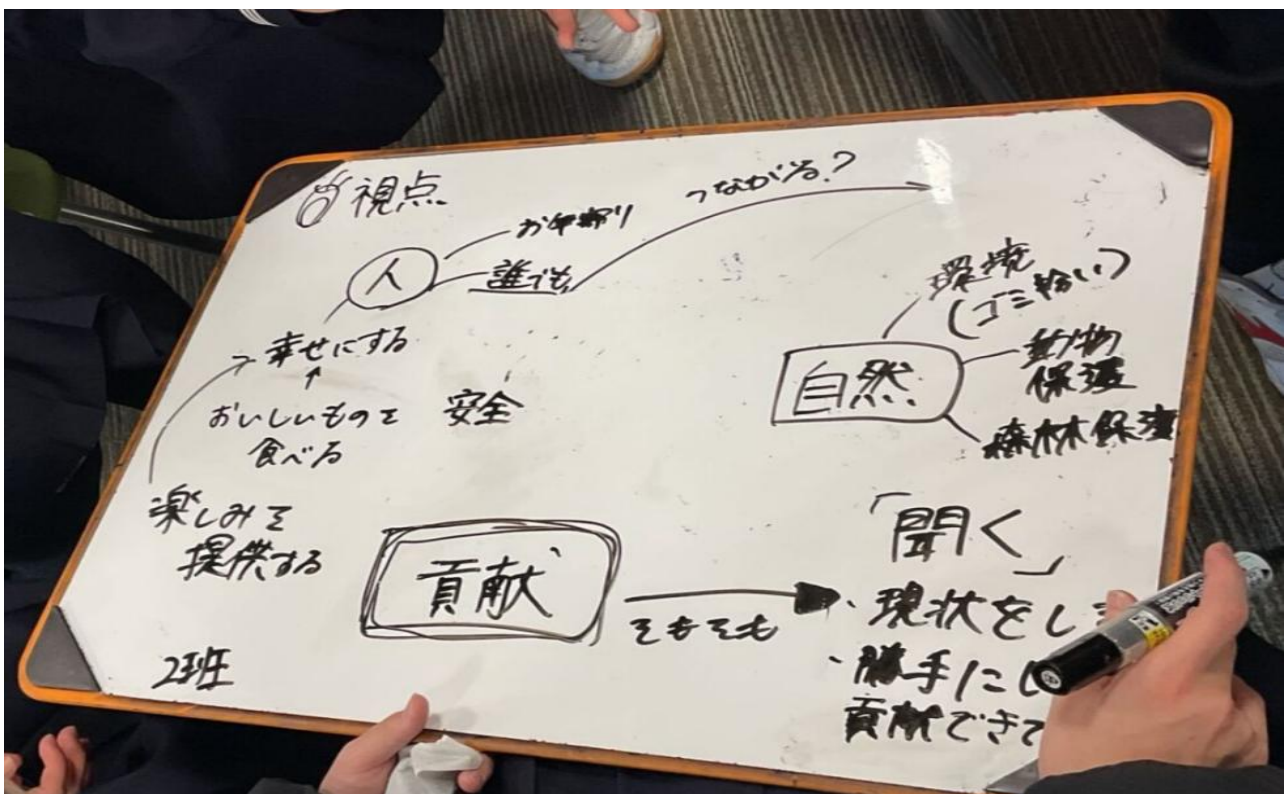 視点
お年寄り
つながる?
人
誰でも
幸せにする
おいしいものを
食べる
安全
楽しみを
提供する
環境
(ゴミ拾い)
自然
動物
保護
森林保護
貢献
そもそも
「聞く」
・現状をし
・勝手にし
貢献できて
2班